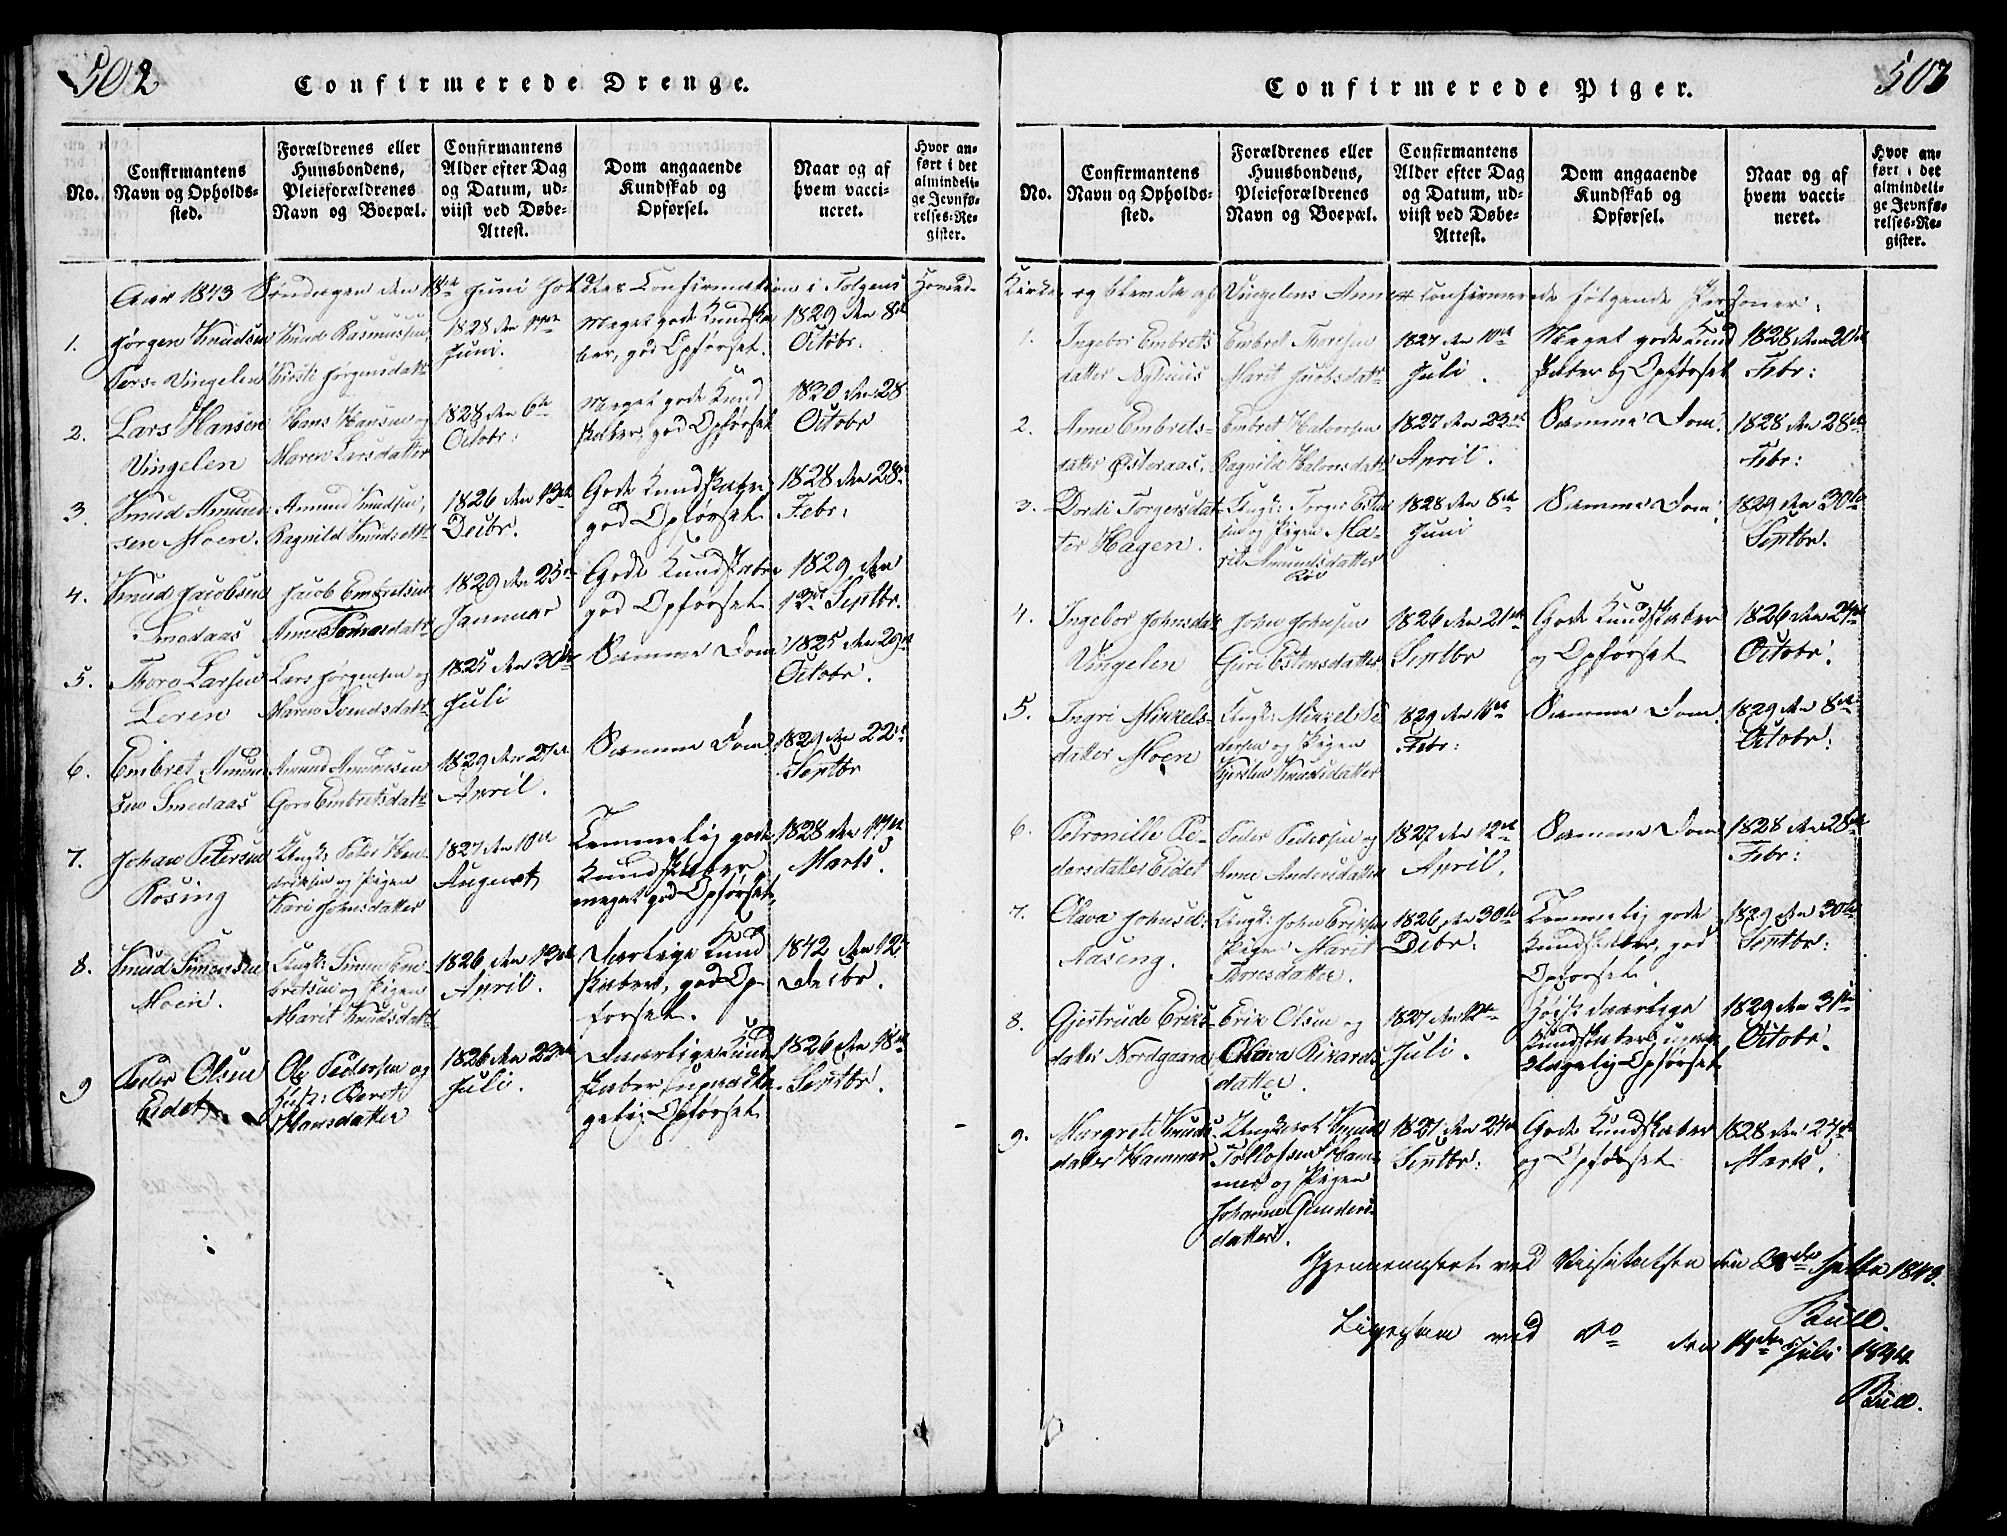 502
Confirmerede Drenge.
No.
Confirmantens
Navn og Opholds-
sted.
Forældrenes eller
Huusbondens,
Pleieforældrenes
Navn og Boepæl.
Confirmantens
Alder efter Dag
og Datum, ud-
viist ved Døbe-
Attest.
Dom angaaende
Kundskab og
Opførsel.
Naar og af
hvem vacci-
neret.
Hvor an-
ført i det
almindeli-
ge Jevnfø-
relses-Re-
gister.
Aar 1843 Søndagen den 18de Juni holdtes Confirmation i Tolgens Hoved-
1.
Jørgen Knudsen
Vingelen
Knud Rasmussen,
Kirsti Jørgensdatt
1828 den
Juni.
Meget gode Kundska
ber, god Opførsel.
1829 den 8de
Octobr.
2.
Lars Hansen
Vingelen
Hans Hansen og
Maren Larsdatter
1828 den 6te
Octobr:
Meget gode Kund
skaber, god Opførsel
1830 den 28
Octobr
3.
Knud Amund-
sen Moen.
Amund Knudsen,
Ragnild Knudsdatt
1826 den 13de
Decbr.
Gode Kundskaber,
god Opførsel
1828 den 28
Febr:
4.
Knud Jacobsen
Smedaas
Jacob Embretsen
Anne datt
1829 den 25
Januar
Gode Kundskaber
god Opførsel
1829 den
13de Septbr.
5.
Thore Larsen
Leren
Lars Jørgensen og
Maren Svendsdatt
1825 den 30te
Juli
Samme Dom
1825 den 29de
Octobr.
6.
Embret Amund
sen Smedaas
Amund Amundsen
Goro Embretsdatt
1829 den 27de
April.
Samme Dom
1829 den 22de
Septbr
7.
Johan Petersen
Rosing
Ungk: Peter Hen-
driksen og Pigen
Kari Johnsdatter
1827 den 19de
August
Temmelig gode
Kundskaber,
meget god Opførsel,
1828 den 17de
Marts.
8.
Knud Simensen
Moen.
Ungk: Simen Em-
bretsen og Pigen
Marit Knudsdatt
1826 den 13de
April.
Daarlige Kund
skaber, god Op-
førsel.
1842 den 12
Decbr.
9
Peder Olsen
Eidet
Ole Pedersen og
Hust: Berit
Hansdatter
1826 den 23de
Juli.
Daarlige Kund-
skaber, upaakla-
gelig Opførsel
1826 den 18de
Septbr.
503
Confirmerede Piger.
No.
Confirmantens
Navn og Opholds-
sted.
Forældrenes eller
Huusbondens,
Pleieforældrenes
Navn og Boepæl.
Confirmantens
Alder efter Dag
og Datum, ud-
viist ved Døbe-
Attest.
Dom angaaende
Kundskab og
Opførsel.
Naar og af
hvem vacci-
neret.
Hvor an-
ført i det
almindeli-
ge Jevnfø-
relses-Re-
gister.
Kirke, og bleve da af Vingelens Annex confirmerede følgende Personer:
1.
Ingebor Embrets
datter Nyhuus
Embret Thoresen
Marit Jacobsdatt
1827 den 10de
Juli.
Meget gode Kund
skaber og Opførsel
1828 den 20de
Febr:
2.
Anne Embrets-
datter Østeraas.
Embret Halvorsen
Ragnild Halvorsdatt
1827 den 23de
April.
Samme Dom.
1828 den 28de
Febr:
3.
Dordi Torgersdat
ter Hagen.
Ungk: Torger Este
sen og Pigen Ma-
rit Amundsdatter
1828 den 8de
Juni
Samme Dom.
1829 den 30te
Septbr.
4.
Ingebor Johnsdatt
Vingelen
John Johnsen
Guri Estensdatter
1826 den 21de
Septbr
Gode Kundskaber
og Opførsel
1826 den 24de
Octobr.
5.
Ingri Mikkels-
datter Moen
Ungk: Mikkel Pe
dersen og Pigen
Kjersten Knudsdatter
1829 den
Febr:
Samme Dom.
1829 den 8de
Octobr:
6.
Petronille Pe-
dersdatter Eidet
Peder Pedersen og
Anne Andersdatter
1827 den 12te
April.
Samme Dom
1828 den 28de
Febr:
7.
Olava Johnsd:
Aaseng.
Ungk: John Eriksen
Pigen Marit
Thoresdatter.
1826 den 30te
Debr:
Temmelig gode
Kundskaber, god
Opførsel.
1829 den 30te
Septbr:
8.
Gjertrude Eriks
datter Nordgaard
Erik Olsen og
Olava Rikards
datter.
1827 den
Juli.
Høist daarlige
Kundskaber, upaa
klagelig Opførsel
1829 den 31te
Octobr.
9.
Margrete Knuds
datter Hammer
Ungkarl Knud
Tollofsen Ham-
mer og Pigen
Johanne Gunders
datter.
1827 den 24de
Septbr:
Gode Kundskaber
og Opførsel
1828 den 27de
Marts.
Gjennemseet ved Visitatsen den 1843.
Bull.
Ligesaa ved Do den 14de Juli 1844
Bull.